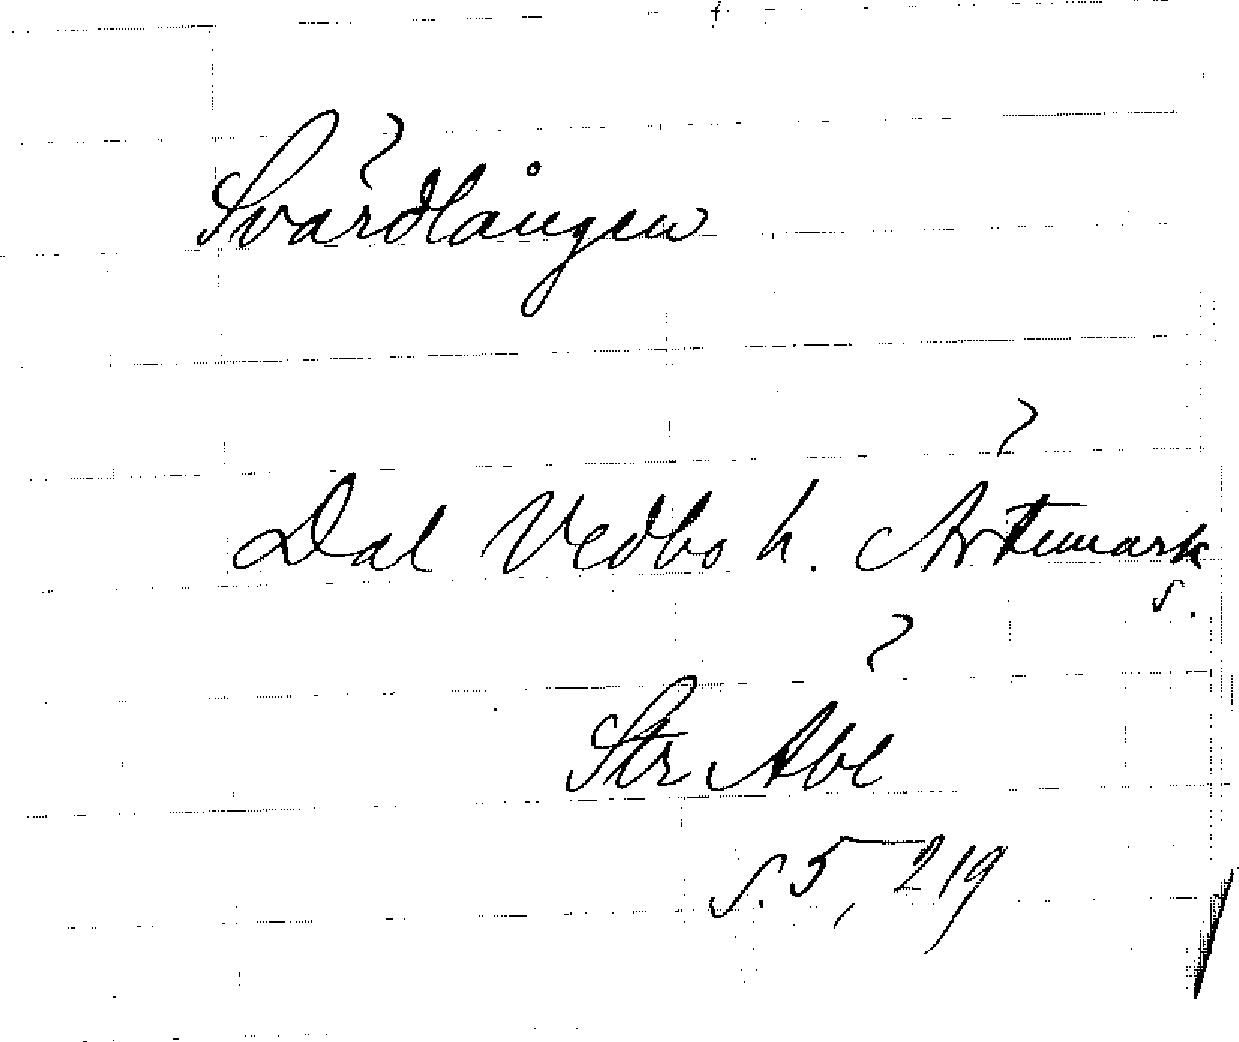 Svärdlången
Dal Vedbo h. Ärtemark
s.
Str Åbl
s. 5, 219